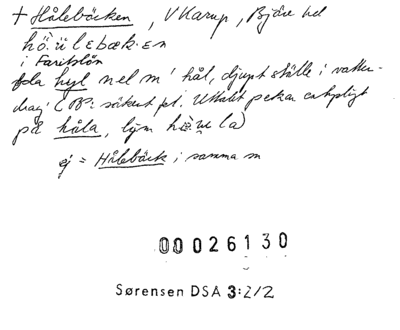 + Hålebäcken, V Karup, Bjäre hd
hö·ülebæk·en
i Faritslöv
fda hyl nel m' håls, djupt ställe i vatten-
drag' (OP: säkert fel. Uttalet pekar entydigt
på håla, ljm hö·u la)
ej = Hålebäck i samma sn
00026130
Sørensen DSA 3:212